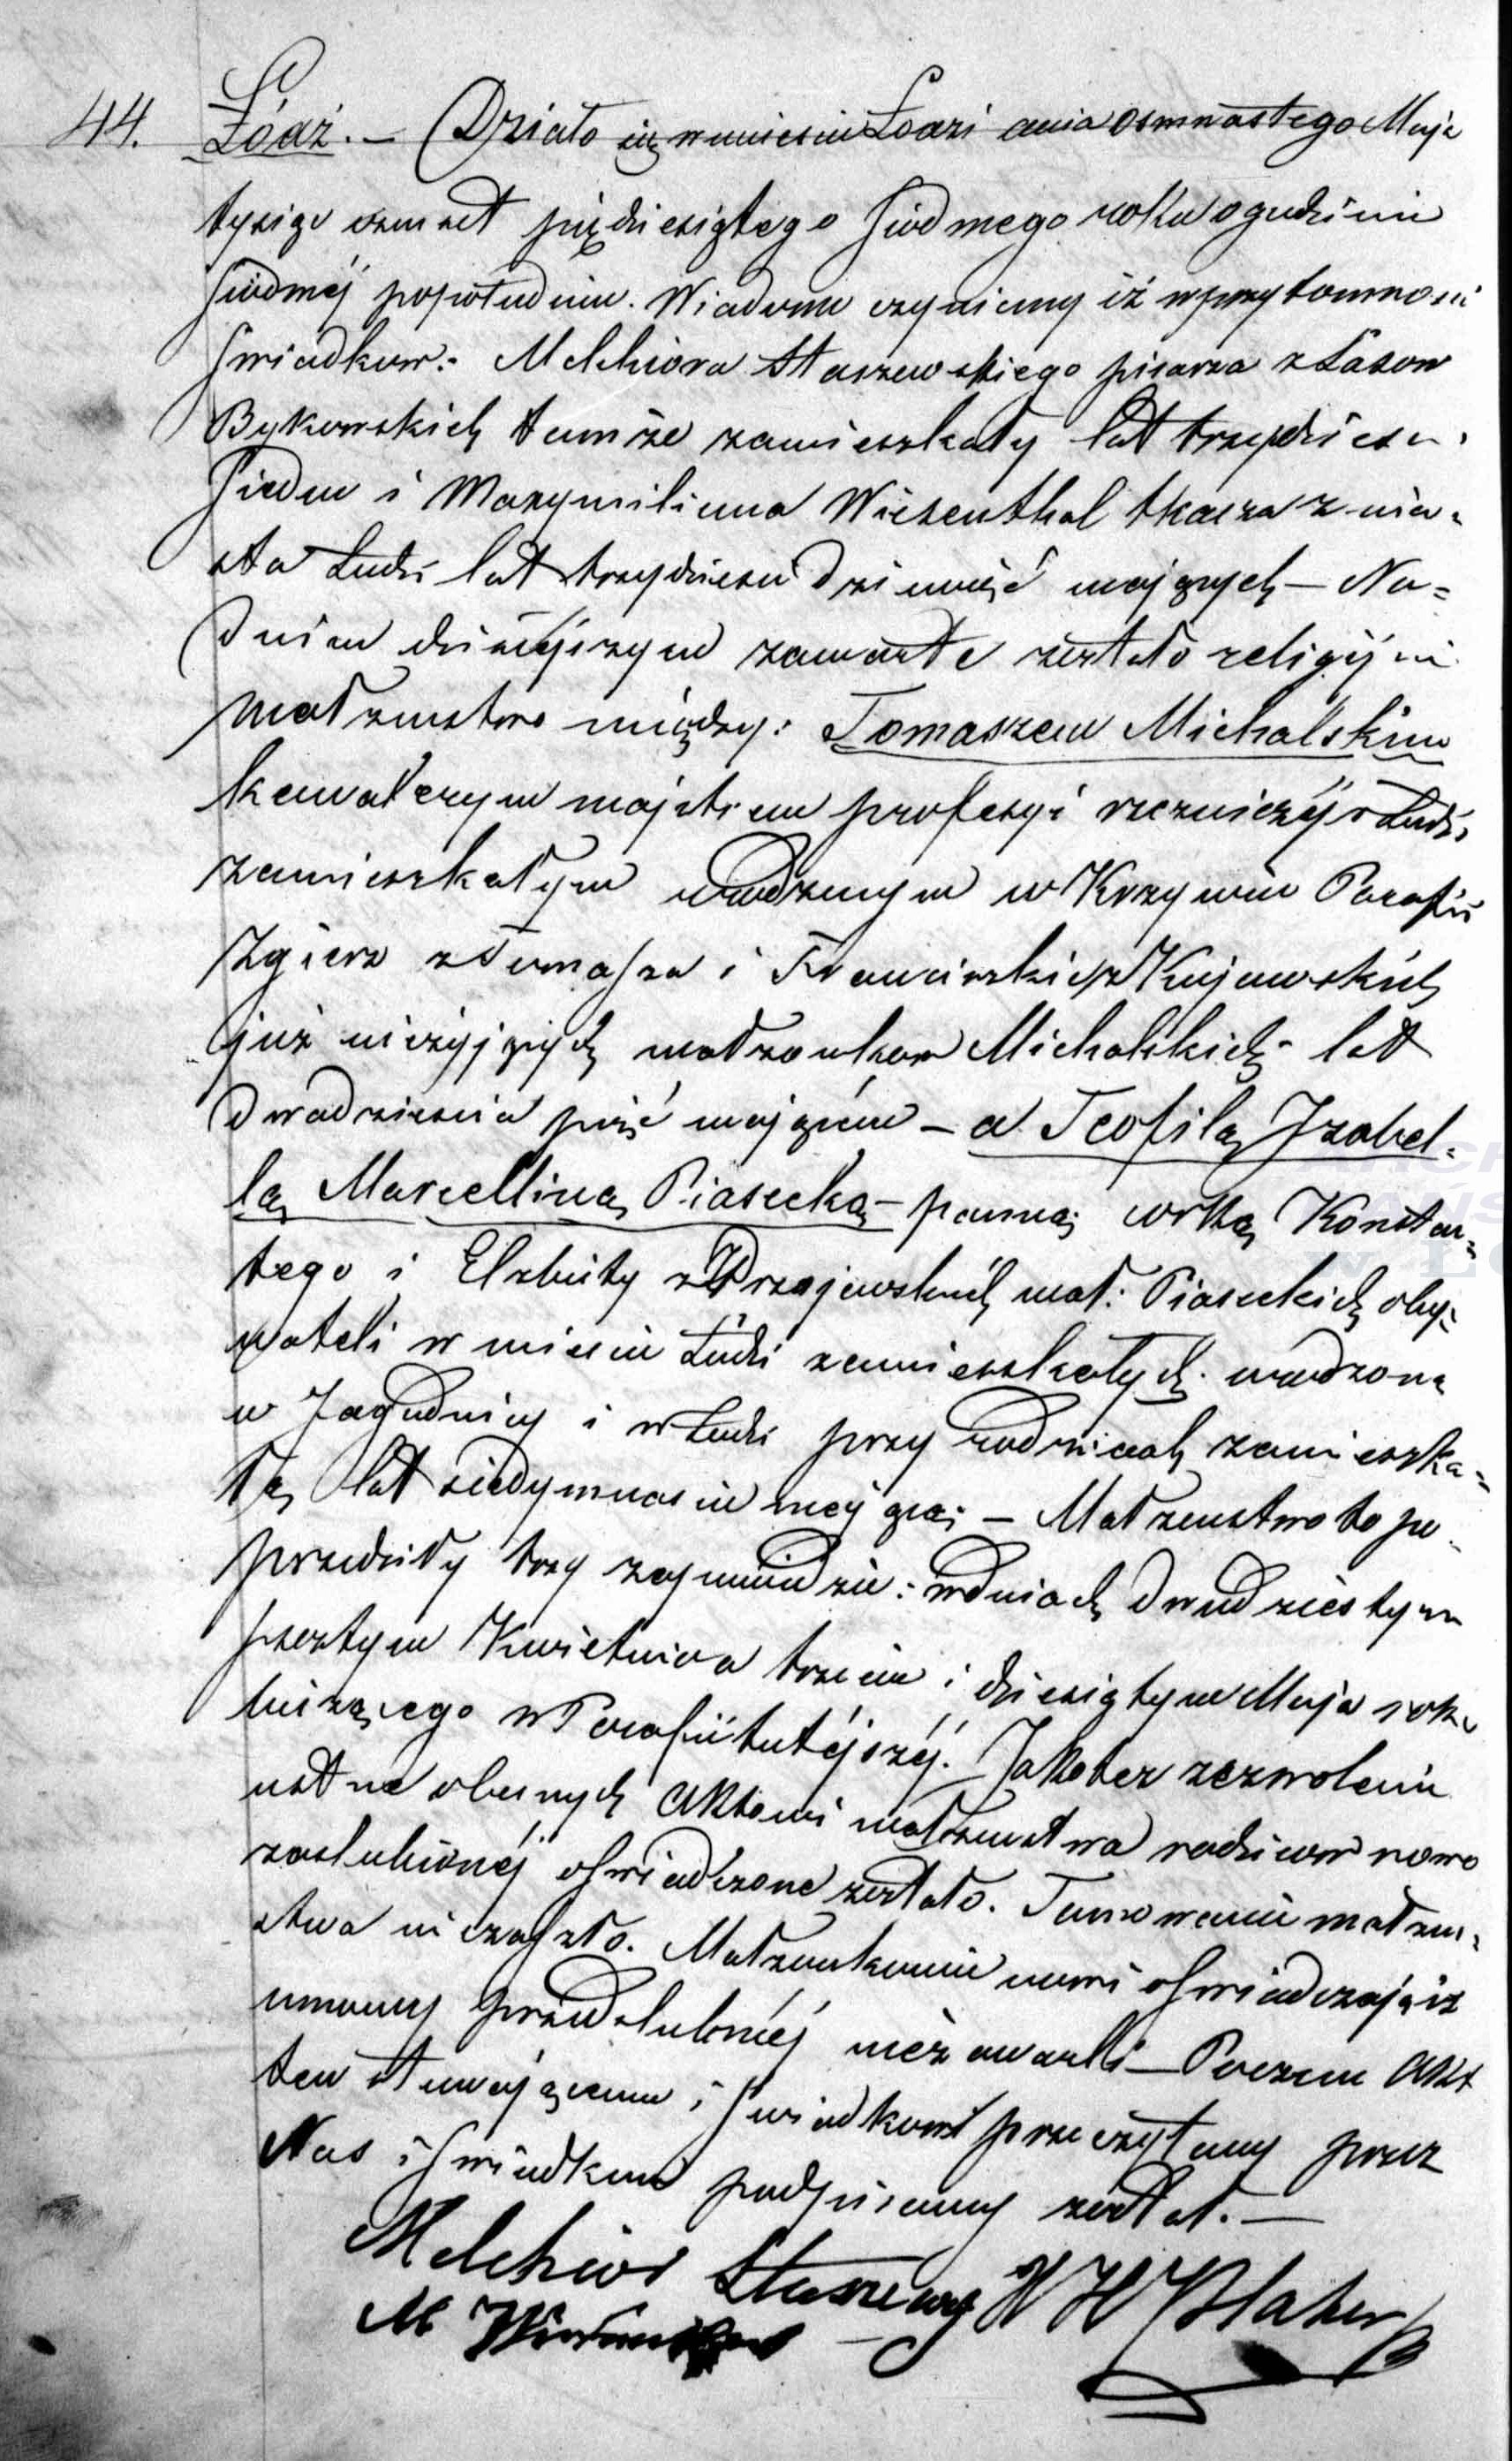 44. Łódź. — Działo się w mieście Łodzi dnia osmnastego Maja
tysiąc osmset pięćdziesiątego siódmego roku o godzinie
siódméj popołudniu. Wiadomo czyniemy iż w przytomności
świadków: Melchiora Staszewskiego pisarza z Lasów
Bykowskich tamże zamieszkały lat trzydzieści
siedm i Maxymiliana Wiesenthal tkacza z mia-
sta Łodzi lat trzydzieści dziewięć mających — Na
dniu dzisiejszym zawarte zostało religijne
małżeństwo między: Tomaszem Michalskim
kawalerem majstrem profesyi rzezniczéj w Łodzi
zamieszkałym urodzonym w Krzywiu Parafii
Zgierz z Tomasza i Franciszki z Kujawskich
już nieżyjących małżonków Michalskich lat
dwadzieścia pięć mającym — a Teofilą Izabel-
lą Marcellиną Piasecką — panną córką Konstan-
tego i Elżbiety z mał: Piaseckich oby-
wateli w mieście Łodzi zamieszkałych. urodzoną
w Jagodnicy i w Łodzi przy rodzicach zamieszka-
łą lat siedymnaście mającą — Małżeństwo to po-
przedziły trzy zapowiedzie: w dniach dwudziestym
szestym Kwietnia trzecim i dziesiątym Maja roku
bieżącego w Parafii tutéjszéj. Jakoteż zezwolenie
ustne obecnych Aktowi małżeństwa rodziców nowo
zaślubionéj oświadczone zostało. Tamowanie małżeń-
stwa nie zaszło. Małżonkowie nowi oświadczają iż
umowy przedślubnéj nie zawarli — Poczem Akt
ten stawającym i świadkom przeczytany przez
Nas i świadków podpisany został. —
Melchior Staszewski
M